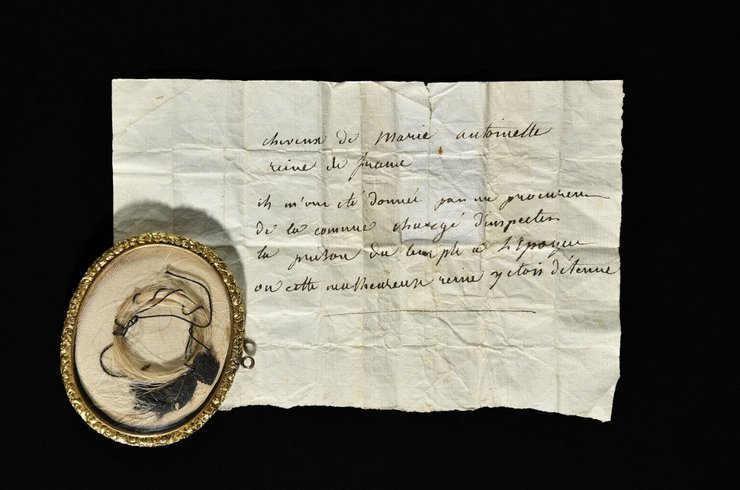 cheveux de Marie antoinette
reine de france
ils m'ont été donnée par un procureur
de la commune chargé d'inspecter
la prison du temple a L'Epoque
ou cette malheureuse reine y etois détenue